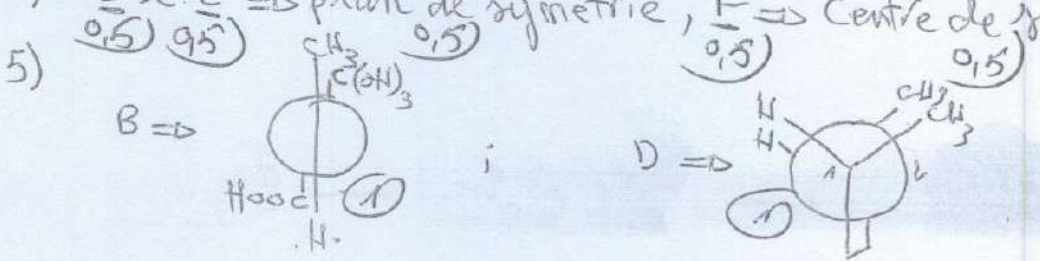 => plan de symétrie, F => Centre de
0,5 0,5 0,5 0,5 0,5
5)
CH3
C(OH)3
B =>
HOOC
H
1
;
D =>
H
H
CH3
CH3
1
2
1